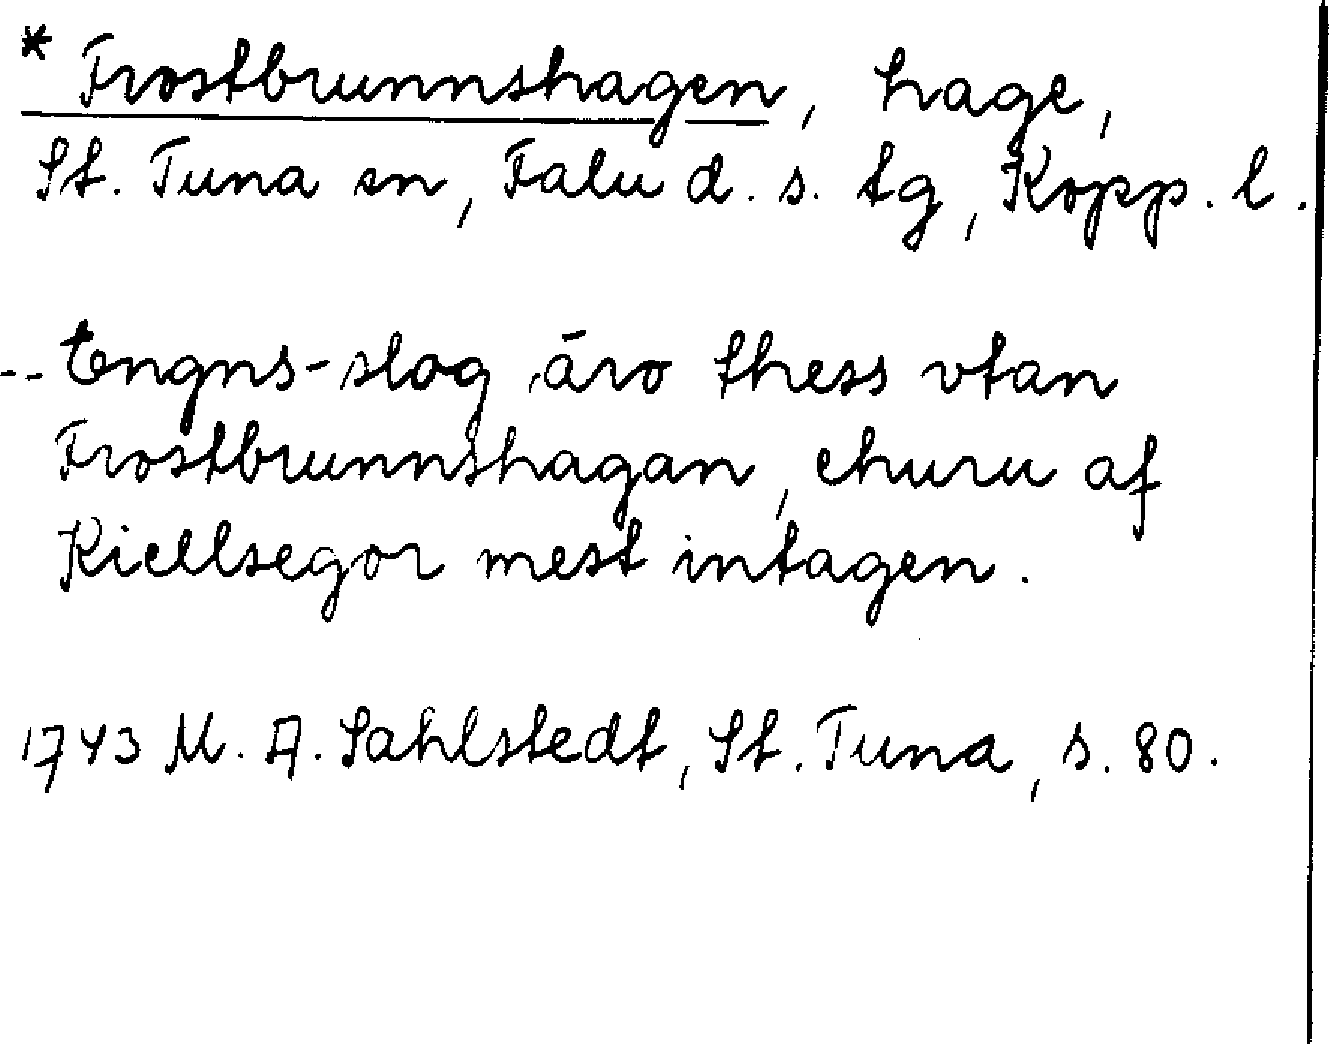 * Frostbrunnshagen, hage,
St. Tuna sn, Falu d. s. tg, Kopp. l.
-- Engns-slog äro thess vtan
Frostbrunnshagan, ehuru af
Kiellsegor mest intagen.
1743 M. A. Sahlstedt, St. Tuna, s. 80.